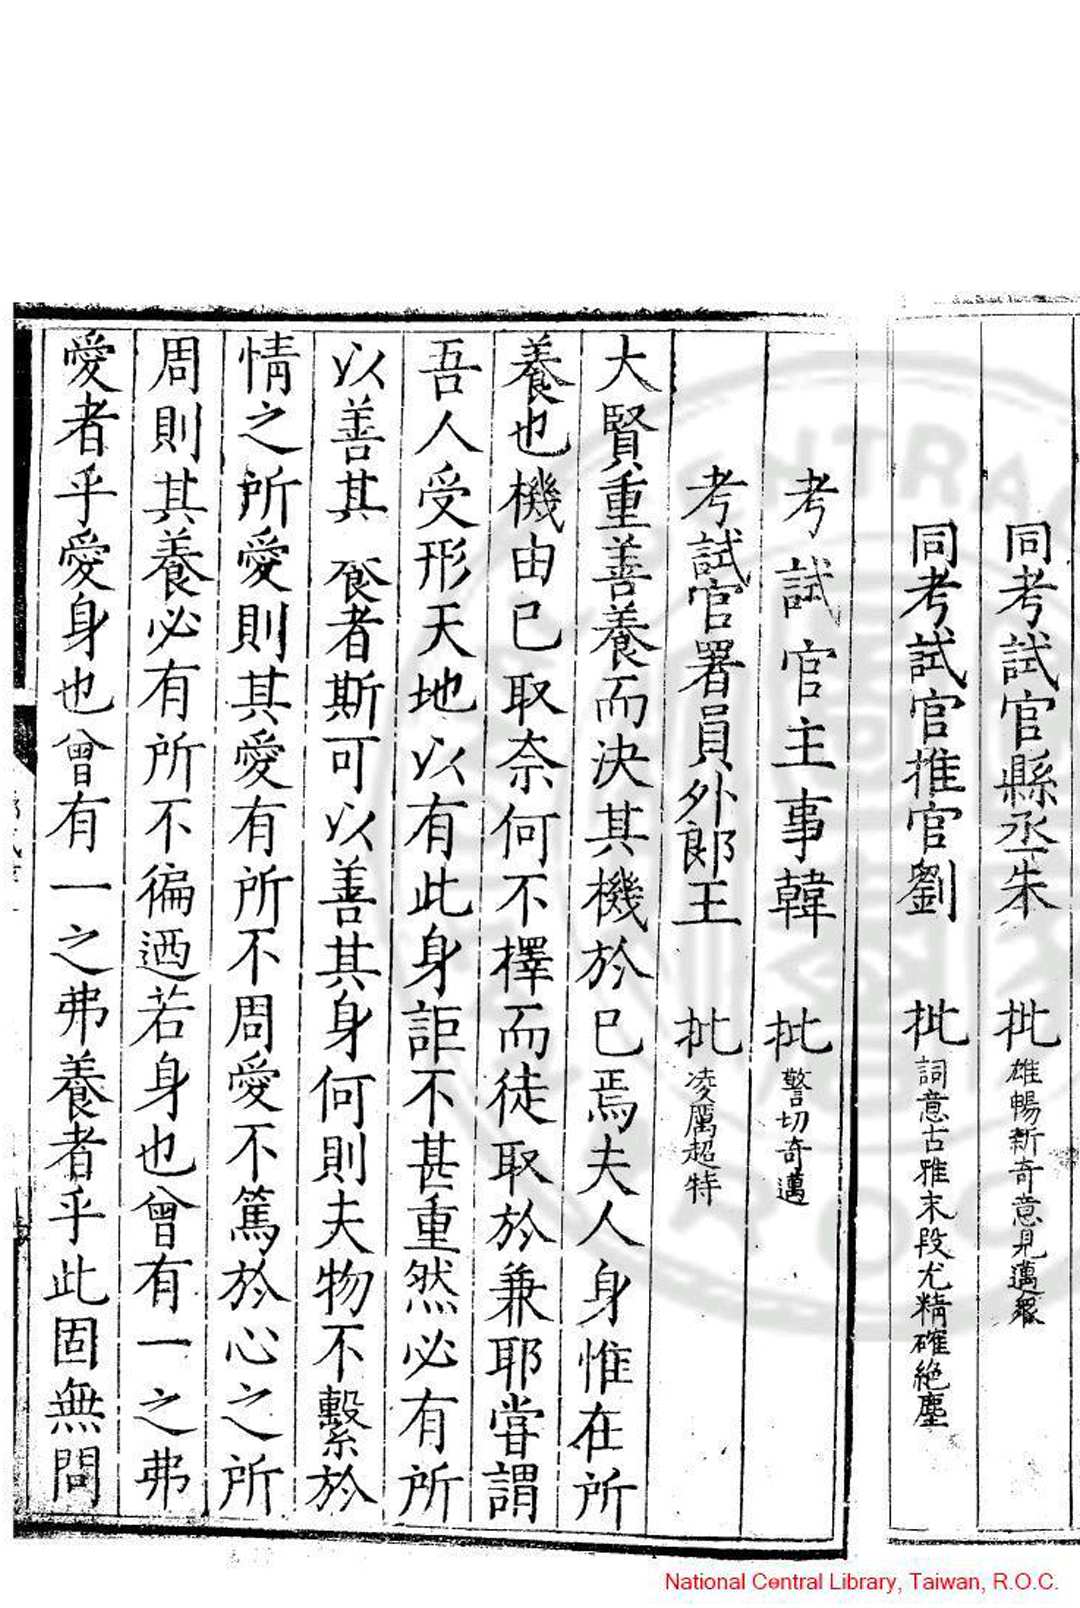 同考試官縣丞朱 批 雄暢新奇意見邁衆
同考試官推官劉 批 詞意古雅末段尤精確絶塵
考試官主事韓 批 警切奇邁
考試官署員外郎王 批 凌厲超特
大賢重善養而決其機於已焉夫人身惟在所
養也機由已取奈何不擇而徒取於兼耶嘗謂
吾人受形天地以有此身詎不甚重然必有所
以善其養者斯可以善其身何則夫物不繫於
情之所愛則其愛有所不周愛不篤於心之所
周則其養必有所不徧迺若身也曾有一之弗
愛者乎愛身也曾有一之弗養者乎此固無問
National Central Library, Taiwan, R.O.C.